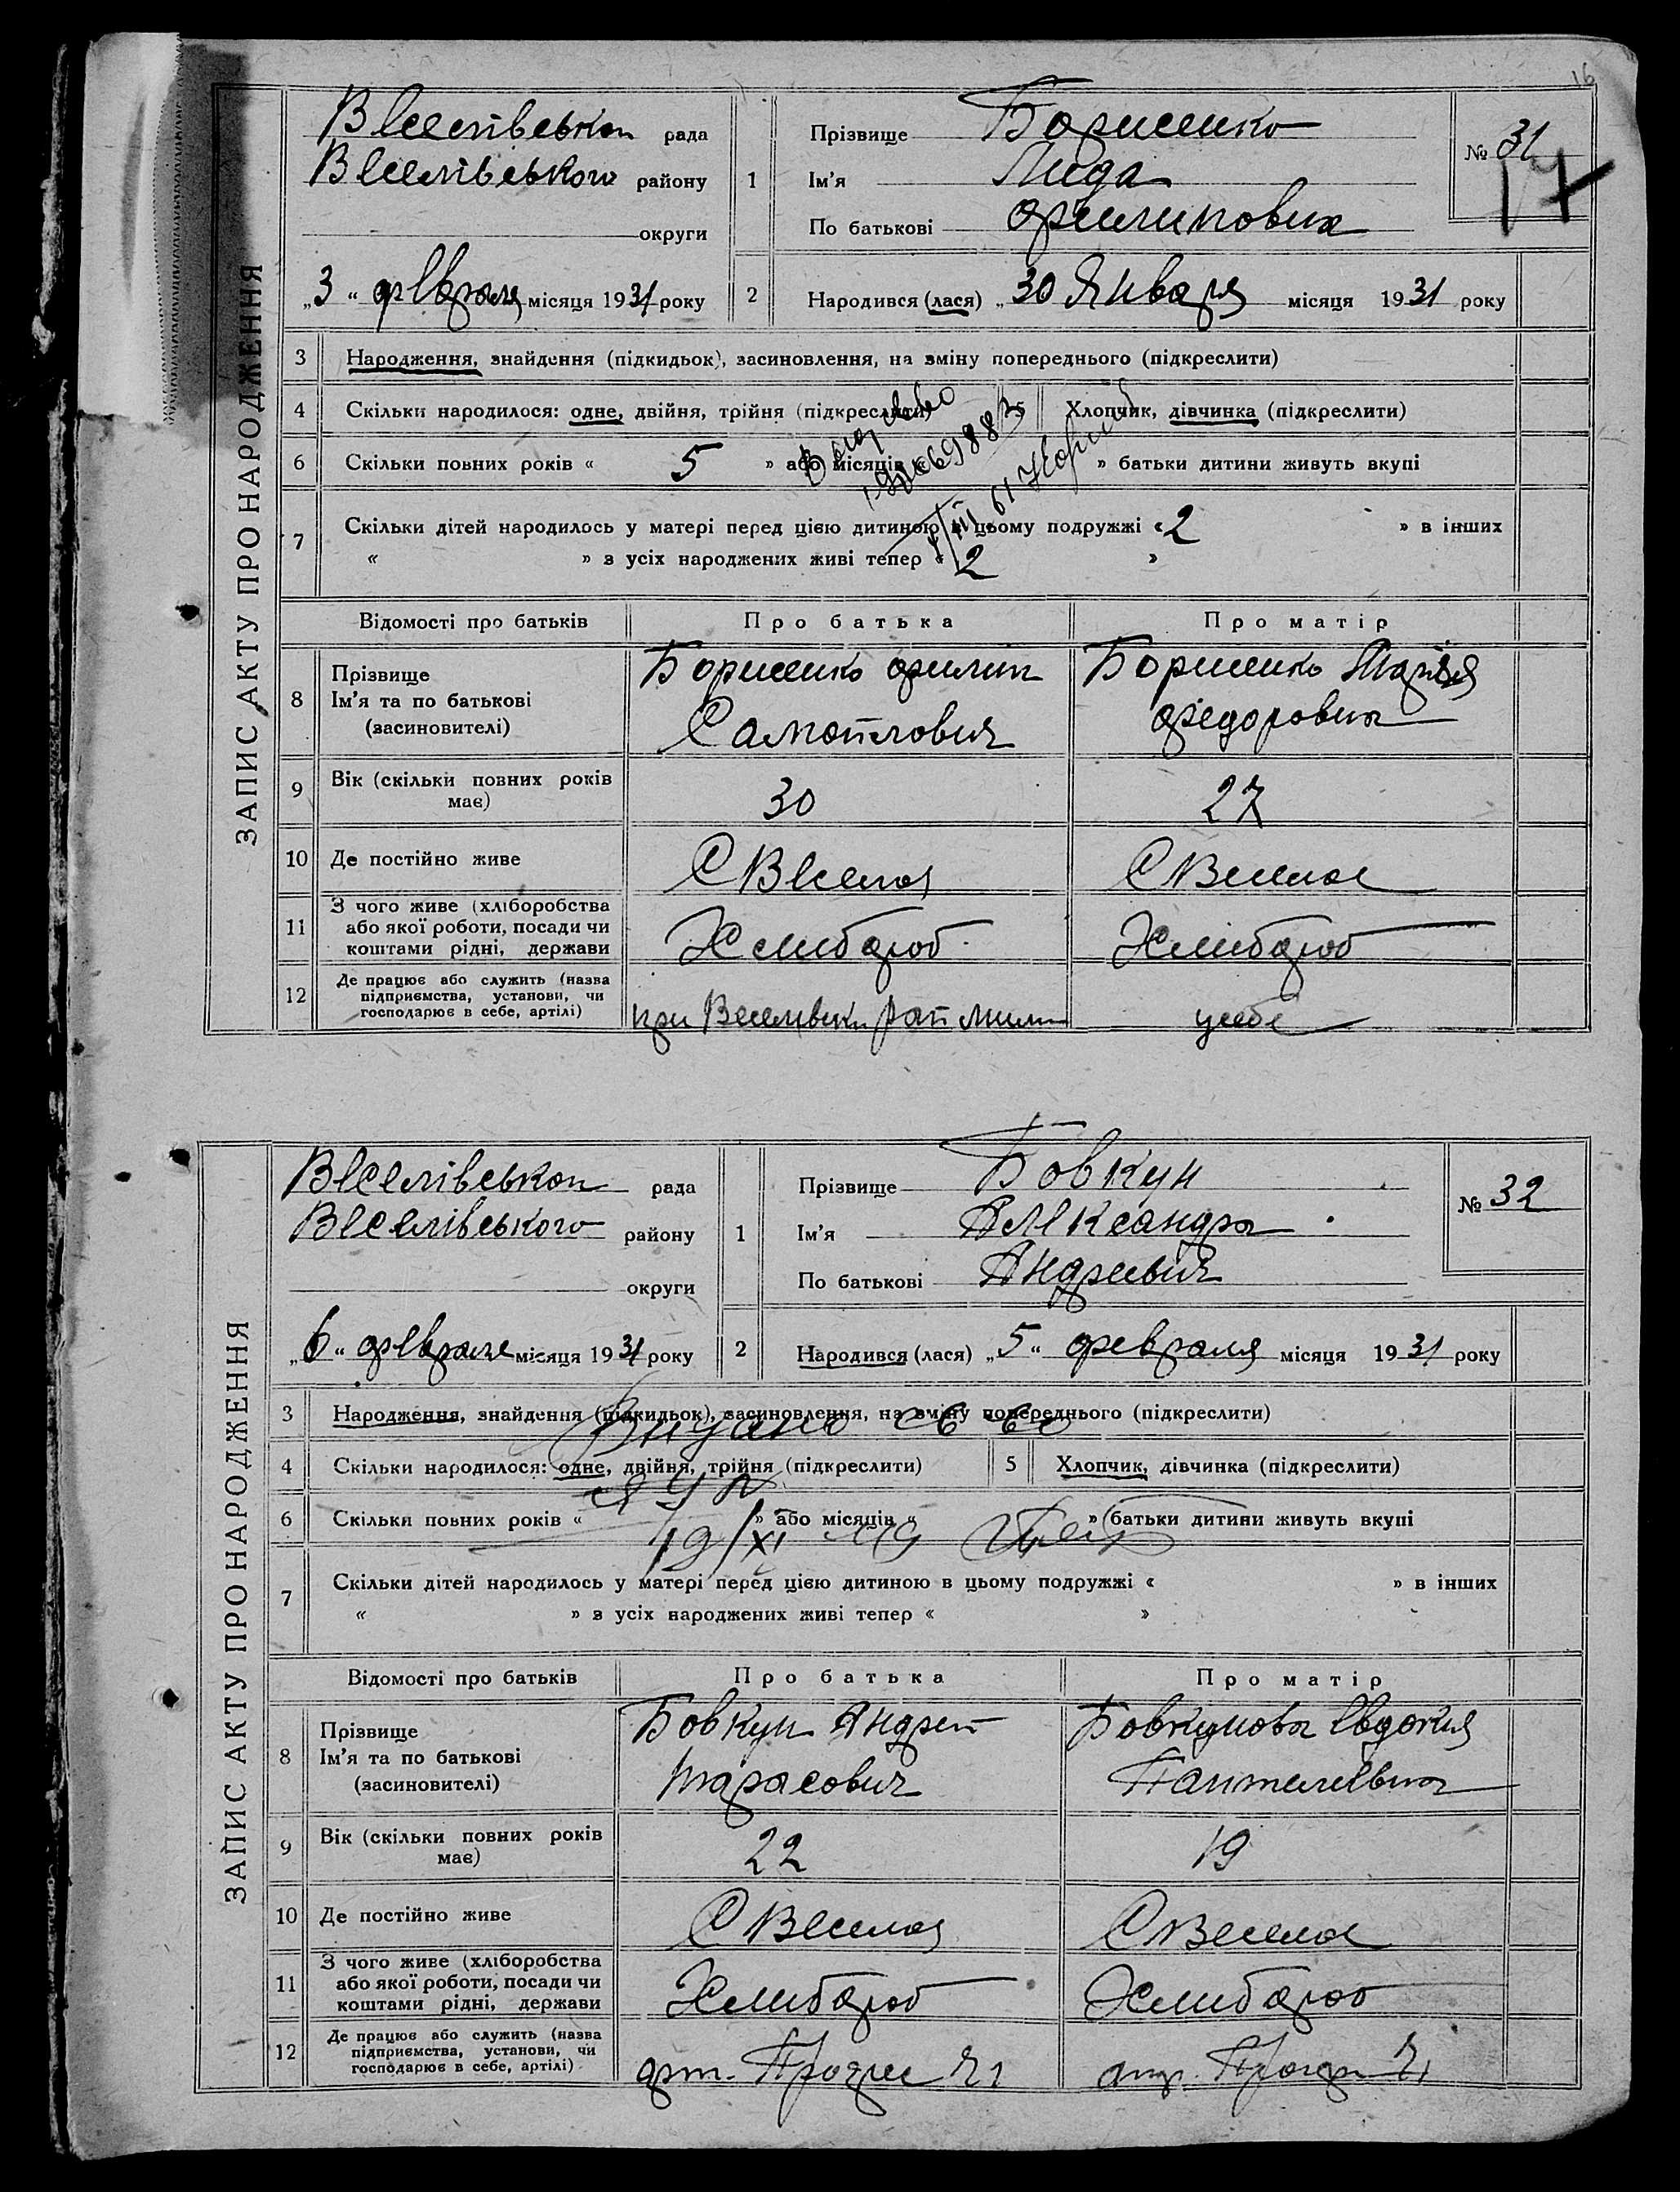 16
ЗАПИС АКТУ ПРО НАРОДЖЕННЯ
Веселівськой рада
Веселівського району
округи
„3“ февраля місяця 1931 року
1 Прізвище Борисенко
Ім'я Лида
По батькові Филиповна
№ 31
17
2 Народився (лася) „30 Января місяця 1931 року
3 Народження, знайдення (підкидьок), засиновлення, на зміну попереднього (підкреслити)
4 Скільки народилося: одне, двійня, трійня (підкреслити) 5 Хлопчик, дівчинка (підкреслити)
6 Скільки повних років « 5 » або місяців « » батьки дитини живуть вкупі
7 Скільки дітей народилось у матері перед цією дитиною в цьому подружжі «2 » в інших
« » з усіх народжених живі тепер « 2 »
Відомості про батьків Про батька Про матір
8 Прізвище
Ім'я та по батькові
(засиновителі)
Борисенко Филип
Самойлович
Борисенко Марія
Федоровна
9 Вік (скільки повних років
має)
30 27
10 Де постійно живе С Веселоя С Веселое
11 З чого живе (хліборобства
або якої роботи, посади чи
коштами рідні, держави
Хлибароб Хлибароб
12 Де працює або служить (назва
підприємства, установи, чи
господарює в себе, артілі)
при у себе
ЗАПИС АКТУ ПРО НАРОДЖЕННЯ
Веселівськой рада
Веселівського району
округи
„6“ февраля місяця 1931 року
1 Прізвище Бовкун
Ім'я Александра
По батькові Андреевич
№ 32
2 Народився (лася) „5“ февраля місяця 1931 року
3 Народження, знайдення (підкидьок), засиновлення, на зміну попереднього (підкреслити)
Видано
4 Скільки народилося: одне, двійня, трійня (підкреслити) 5 Хлопчик, дівчинка (підкреслити)
6 Скільки повних років « » або місяців « » батьки дитини живуть вкупі
19/XI
7 Скільки дітей народилось у матері перед цією дитиною в цьому подружжі « » в інших
« » з усіх народжених живі тепер « »
Відомості про батьків Про батька Про матір
8 Прізвище
Ім'я та по батькові
(засиновителі)
Бовкун Андрей
Тарасович
Бовкунова Евдокия
Пантелеевна
9 Вік (скільки повних років
має)
22 19
10 Де постійно живе С Веселоя С Веселое
11 З чого живе (хліборобства
або якої роботи, посади чи
коштами рідні, держави
Хлибароб Хлибароб
12 Де працює або служить (назва
підприємства, установи, чи
господарює в себе, артілі)
арт. Прогрес